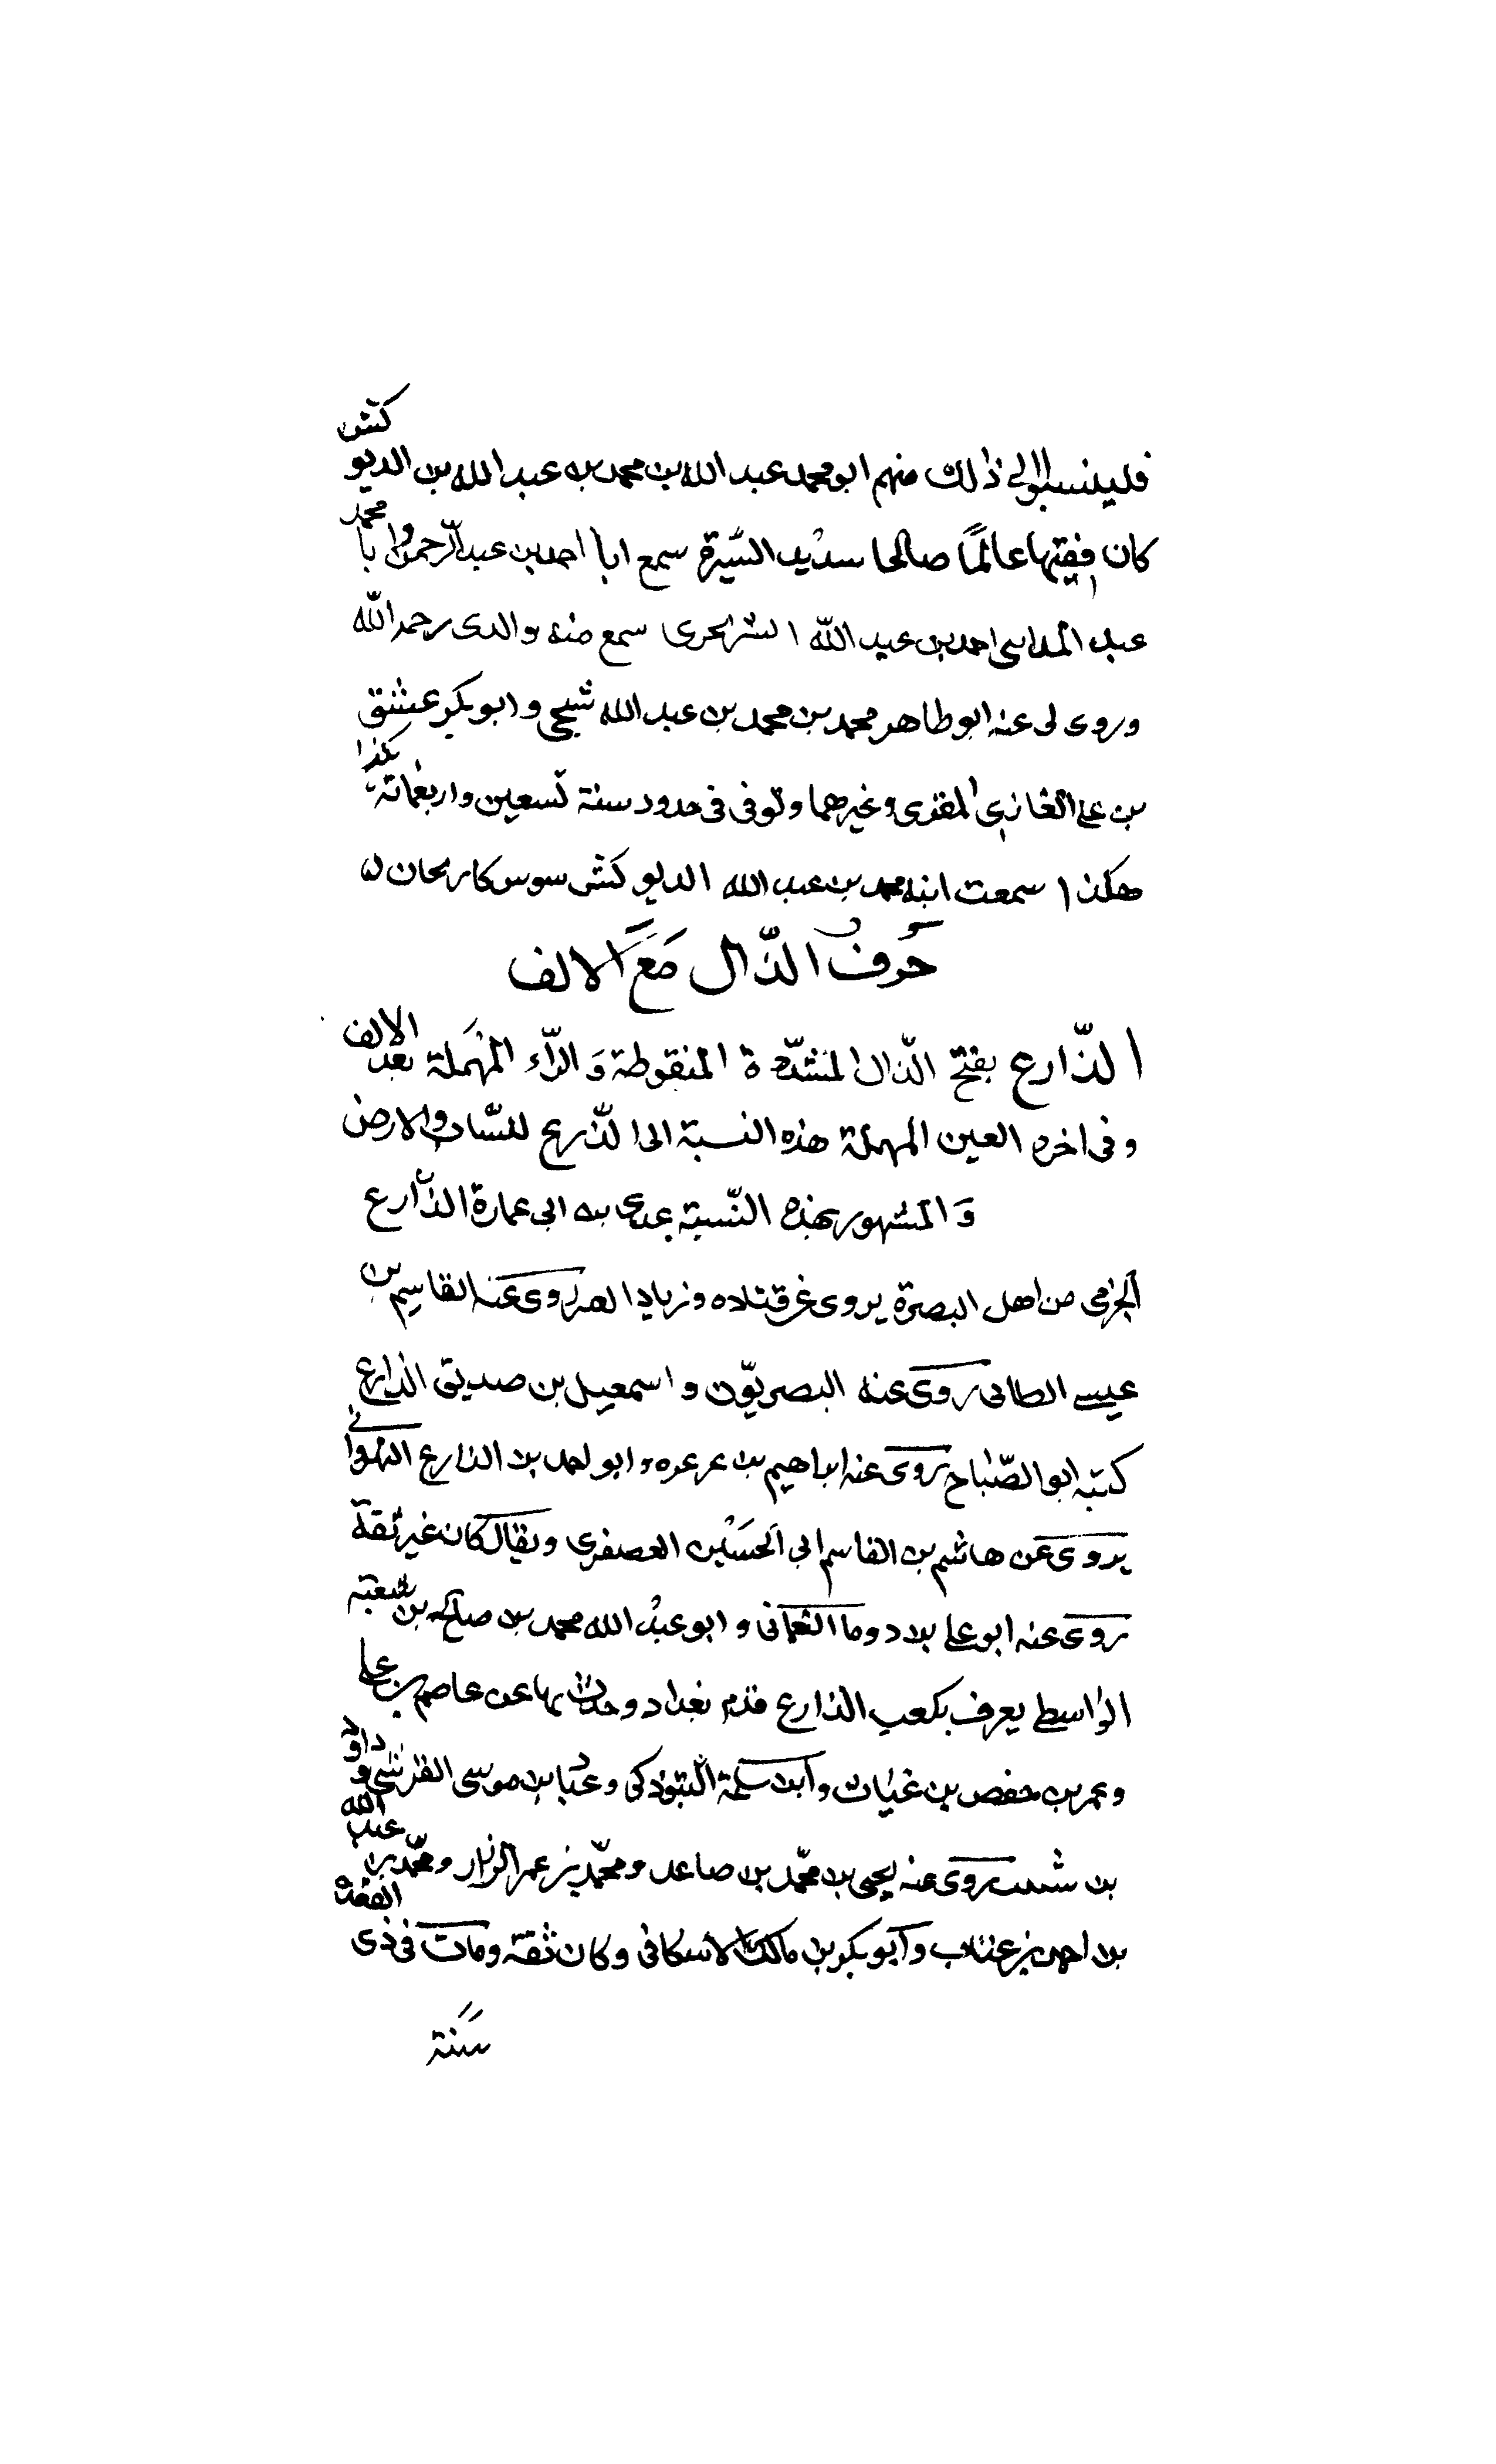 فلينسبوا الى ذلك منهم ابو محمد عبد الله بن محمد بن عبد الله بن الديو كش
كان فقيها عالمًا صالحا سديد السّيرة سمع ابا احمد بن عبد الرّحمن وابا محمد
عبد احمد بن عبيد الله سمع منه والدى رحمه الله
وروى لى عنه ابو طاهر محمد بن محمد بن عبد الله شيخى وابو بكر عتيق
بن على الغازى المقرى وغيرهما وتوفى فى حدود سنة تسعين واربعمائة هكذا
هكذا سمعت ابنه محمد بن عبد الله الديو كش
حَرف الذّال مَعَ الالف
الذّارع بفتح الذال المشدّدة المنقوطة وَالرّاء المُهملة بعد الالف
وفى اخره العين المهملة هذه النسبة الى الذّرع للثّياب والارض
وَالمشهور بهذه النّسبة عدى بن ابى عمارة الذّارع
الجرمى من اهل البصرة يروى عن قتاده وزياد روى عنه القاسم بن
عيسى الطائى روى عنه البصريّون واسمعيل بن صديق الذارع
كنيته ابو الصّباح روى عنه ابراهيم بن عرعره وابو احمد بن الذارع النهروانى
يروى عن هاشم بن القاسم ابى الحسَين العصفرى ويقال كان غير ثقة
روى عنه ابو على بن دوما النعمانى وابو عبد الله محمد بن صالح بن شعبة
الواسطى يعرف بكعب الذارع قدم بغداد وحدث بها عن عاصم بن على
وعمر بن حفص بن غياث وابن سلمة التبوذكى وعباد بن موسى القرشى وداود
بن شبيب روى عنه يحيى بن محمّد بن صاعد ومحمّد بن عمر الرزاز ومحمّد بن عبد الله الفقيه
بن احمد بن عتاب وابو بكر بن مالك الاسكافى وكان ثقة ومات فى ذى
سَنة